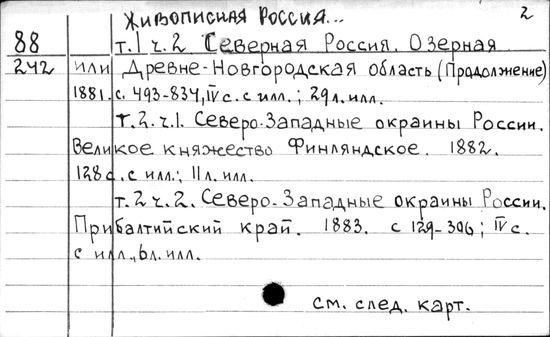 Живописная Россия... 2
88 т.1 ч.2 Северная Россия. Озерная
242 или Древне-Новгородская область (Продолжение)
1881. с. 493-834, IV с. с илл.; 29 л. илл.
т.2. ч.1. Северо-Западные окраины России.
Великое княжество Финляндское. 1882.
128 с. с илл.; 11 л. илл.
т.2 ч.2. Северо-Западные окраины России.
Прибалтийский край. 1883. с 129-306; IV с.
с илл., 6 л. илл.
см. след. карт.